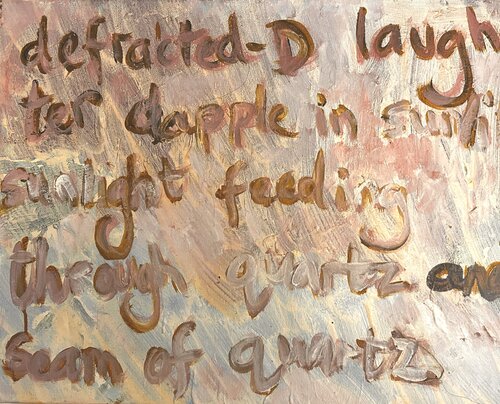 defracted-D laugh
ter dapple in sunli
sunlight feeding
through quartz and
seam of quartz